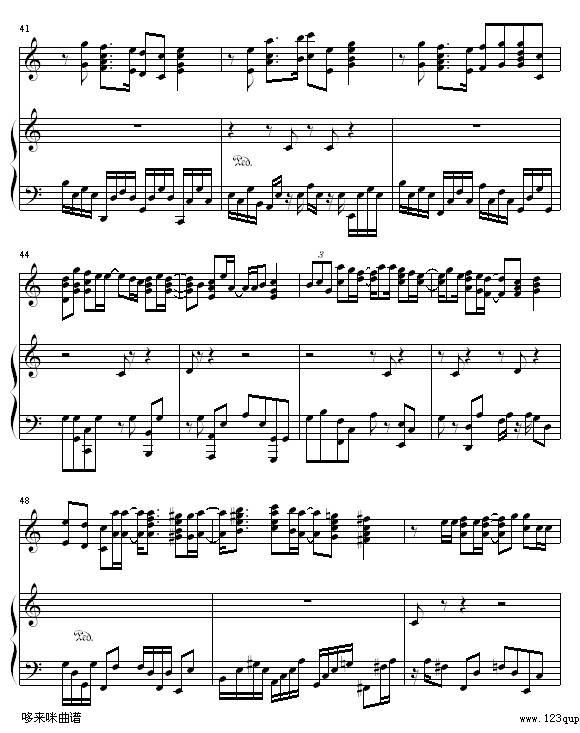 41
Ped.
44
3
48
Ped.
哆来咪曲谱
www.123qup